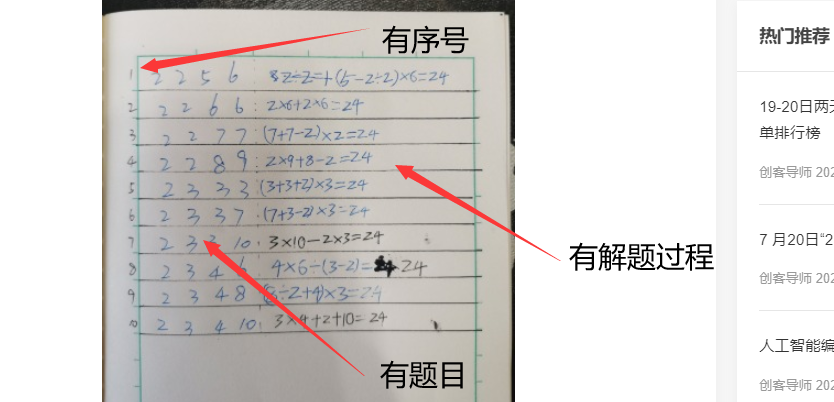 有序号
1 2 2 5 6 (5-2÷2)×6=24
2 2 2 6 6: 2×6+2×6=24
3 2 2 7 7: (7+7-2)×2=24
4 2 2 8 9: 2×9+8-2=24
5 2 3 3 3: (3+3+2)×3=24
6 2 3 3 7: (7+3-2)×3=24
7 2 3 3 10: 3×10-2×3=24
8 2 3 4 6: 4×6÷(3-2)= 24
9 2 3 4 8: (8÷2+4)×3=24
10 2 3 4 10: 3×4+2+10=24
有解题过程
有题目
热门推荐
19-20日两天
单排行榜
创客导师 202
7 月20日“2
创客导师 202
人工智能编
创客导师 202